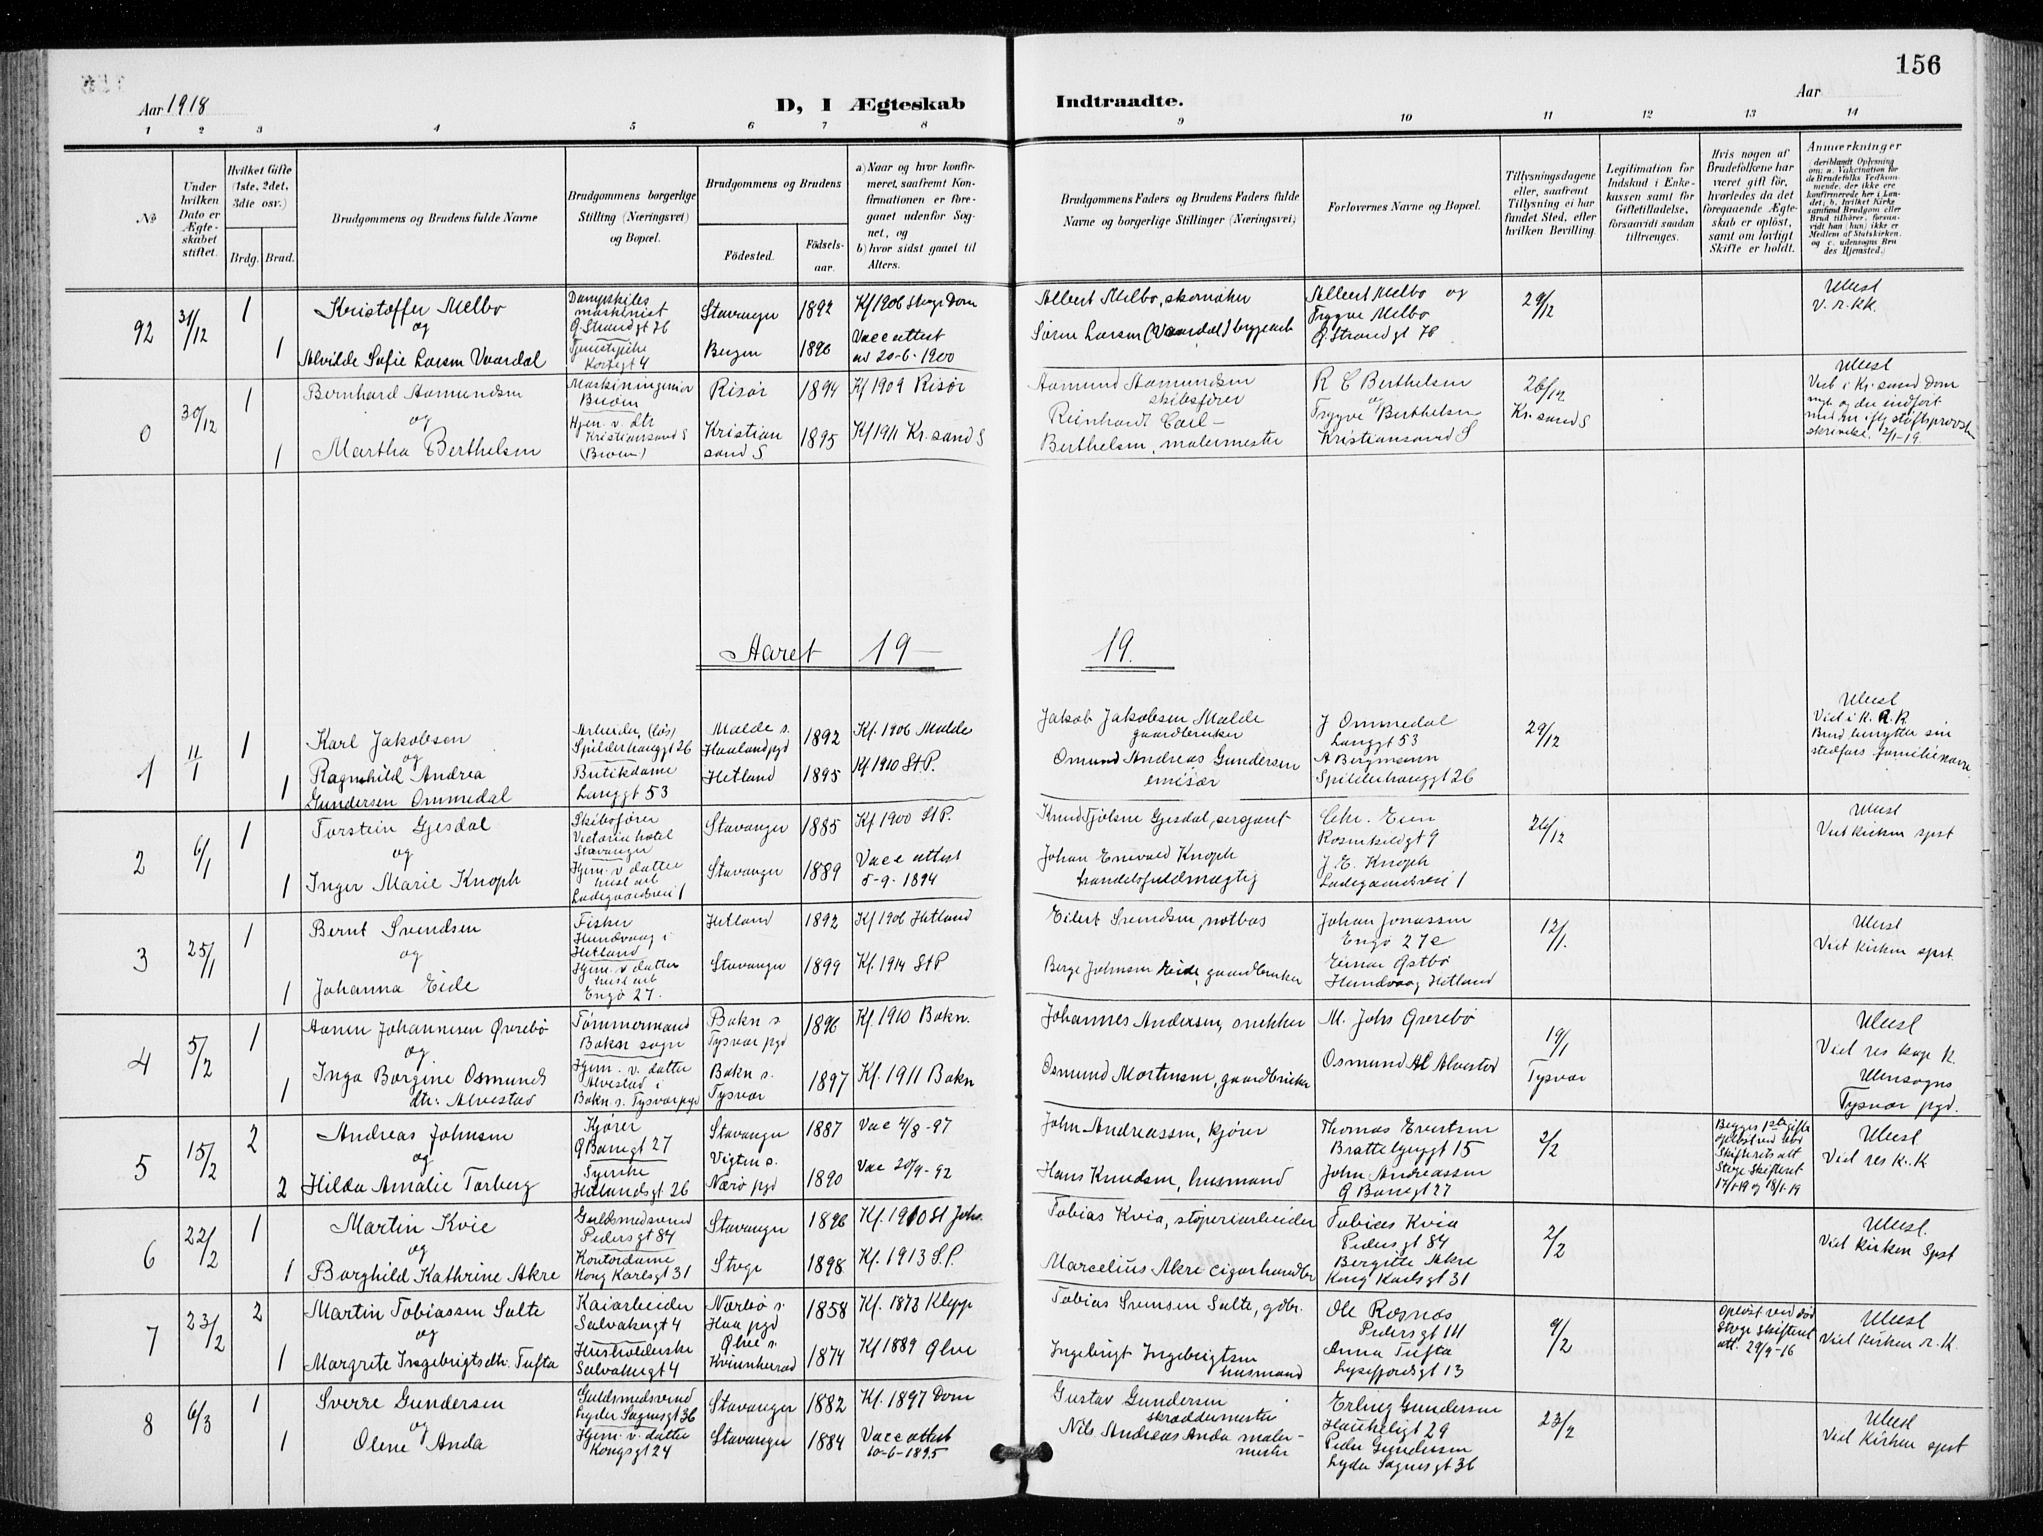 156
Aar 1918
D, I Ægteskab Indtraadte.
Aar
1 2 3 4 5 6 7 8 9 10 11 12 13 14
No
Under hvilken Dato er Ægteskabet stiftet.
Hvilket Gifte (1ste, 2det, 3die osv.)
Brdg. Brud.
Brudgommens og Brudens fulde Navne
Brudgommens borgerlige Stilling (Næringsvei) og Bopæl.
Brudgommens og Brudens
Födested.
Födselsaar.
a) Naar og hvor konfirmeret, saafremt Konfirmationen er foregaaet udenfor Sognet, og
b) hvor sidst gaaet til Alters.
Brudgommens Faders og Brudens Faders fulde Navne og borgerlige Stillinger (Næringsvei)
Forlovernes Navne og Bopæl.
Tillysningsdagene eller, saafremt Tillysning ei har fundet Sted, efter hvilken Bevilling.
Legitimation for Indskud i Enkekassen samt for Giftetilladelse, forsaavidt saadan tiltrænges.
Hvis nogen af Brudefolkene har været gift før, hvorledes da det foregaaende Ægteskab er opløst, samt om lovligt Skifte er holdt.
Anmærkninger
92 31/12 1
Kristoffer Melbo
og
1 Alvilde Sofie Larsen Vaardal
Dampskibs maskinist
Ø. Strandgt 76
Kortegt 4
Stavanger 1892 Kf 1906 Stvgr Dom
Bergen 1896 Vacc attest av 20-6-1900
Albert Melbo, skomaker
Søren Larsen (Vaardal) bryggearb
Albert Melbo og
Trygve Melbo
Ø. Strandgt 78
29/12
Ulvest
V. r. KK.
0 30/12 1
Bernhard Aamundsen
og
1 Martha Berthelsen
Maskiningeniør
Hjem. v. dtr
Kristiansand S
Risør 1894 Kf 1909 Risør
Kristiansand S 1895 Kf 1911 Kr.sand S
Aamund Aamundsen
skibsfører
Reinhardt Carl
Berthelsen, malermester
R C Berthelsen
og
Trygve Berthelsen
Kristiansand S
26/12
Kr.sand S
Ulvest
Aaret 19— 19.
1 11/1 1
Karl Jakobsen
og
1 Ragnhild Andrea
Gundersen Ommedal
Arbeider (løs)
Spilderhauggt 26
Butikdame
Langgt 53
Malde s. Haaland pgd 1892 Kf. 1906 Malde
Hetland 1895 Kf 1910 St P.
Jakob Jakobsen Malde
gaardbruker
Omund Andreas Gundersen
emisær
J Ommedal
Langgt 53
A Bergmann
Spilderhauggt 26
29/12
Ulvest
Viet i K. R. K.
Brud benytter sin
stedfars familienavn
2 6/1 1
Torstein Gjesdal
og
1 Inger Marie Knoph
Skibsfører
Victoria hotel
Stavanger
Hjem. v datter
hust arb
Ladegaardsvei 1
Stavanger 1885 Kf 1900 St P.
Stavanger 1889 Vacc attest 5-9-1894
Knud Tjølsen Gjesdal, sergeant
Johan Enevald Knoph
handelsfuldmægtig
Rosenkildegt 9
J. E. Knoph
Ladegaardsvei 1
26/12
Ulvest
Viet kirken spst
3 25/1 1
Bernt Svendsen
og
1 Johanna Eide
Fisker
Hundvaag i
Hetland
Hjem. v datter
hust arb
Engø 27.
Hetland 1892 Kf. 1906 Hetland
Stavanger 1899 Kf. 1914 St P
Eilert Svendsen, notbas
Berge Johnsen Eide, gaardbruker
Johan Jonassen
Engø 27c
Einar Østbø
Hundvaag Hetland
12/1.
Ulvest
Viet kirken spst.
4 5/2 1
Aanen Johannesen Øvrebø
og
1 Inga Borgine Osmunds
dtr: Alvestad
Tømmermand
Bokn sogn
Hjem. v. datter
Alvestad i
Bokn s. Tysvær pgd
Bokn s. Tysvær pgd 1896 Kf. 1910 Bokn.
Bokn s. Tysvær 1897 Kf. 1911 Bokn
Johannes Andersen, snekker
Osmund Mortensen, gaardbruker
M. Johs Øvrebø
Osmund Al Alvestad
19/1
Tysvær
Ulvest
Viet res kap K.
Utensogns
Tysvær pgd.
5 15/2 2
Andreas Johnsen
og
2 Hilda Amalie Torberg
Kjører
Ø Banegt 27
Syerske
Hetlandsgt 26
Stavanger 1887 Vac 4/8-97
Vigten s. Nærø pgd 1890 Vac 20/9-92
John Andreassen, kjører
Hans Knudsen, husmand
Thomas Evertsen
Brattebygt 15
John Andreassen
Ø Banegt 27
2/2
Begges 1ste gifte
opløst ved død
Skifterets att
Stvgr Skifteret
17/1-19 og 18/1-19
Ulvest
Viet res K. K
6 22/2 1
Martin Kvie
og
1 Borghild Kathrine Akre
Guldsmedsvend
Pedersgt 84
Kontordame
Kong Karlsgt 31
Stavanger 1896 Kf. 1910 St Johs.
Stvgr 1898 Kf. 1913 S.P.
Tobias Kvia, støperiarbeider
Marcelius Akre cigarhandler
Tobias Kvia
Pedersgt 84
Bergitte Akre
Kong Karlsgt 31
2/2
Ulvest.
Viet kirken Spst
7 23/2 2
Martin Tobiassen Salte
og
1 Margrete Ingebrigtsdtr. Tufta
Kaiarbeider
Salvakergt 4
Husholderske
Salvakergt 4
Nærbø s. Haa pgd 1858 Kf. 1873 Klepp
Ølve s. Kvinnherred 1874 Kf 1889 Ølve
Tobias Svensen Salte, gdbr.
Ingebrigt Ingebrigtsen
husmand
Ole Rosnæs
Pedersgt 111
Anna Tufta
Lysefjordsgt 13
9/2
Opløst ved død
Stvgr Skifteret
att. 29/9-16
Ulvest
Viet kirken r. K.
8 6/3 1
Sverre Gundersen
og
1 Olene Anda
Guldsmedsvend
Lyder Sagensgt 36
Hjem. v. datter
Kongsgt 24
Stavanger 1882 Kf. 1897 Dom
Stavanger 1884 Vacc attest 10-6-1895
Gustav Gundersen
skræddermester
Nils Andreas Anda malermester
Erling Gundersen
Haukeligt 29
Peder Gundersen
Lyder Sagensgt 36
23/2
Ulvest
Viet Kirken spst